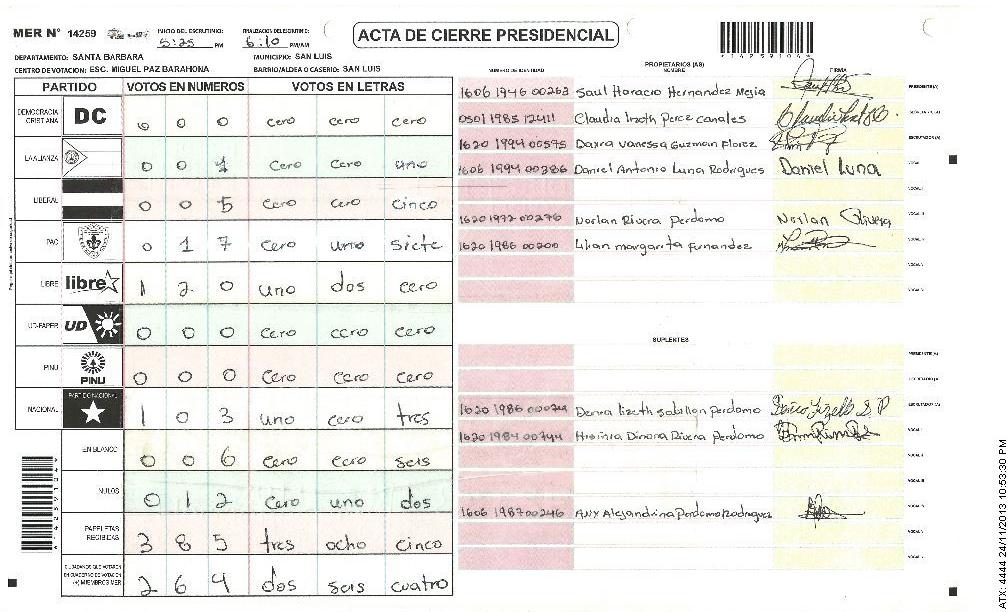 MER N° 14259 INICIO DEL ESCRUTINIO: 5:25 PM FINALIZACION DEL ESCRUTINIO: 6:10 PM/AM
ACTA DE CIERRE PRESIDENCIAL
DEPARTAMENTO: SANTA BARBARA MUNICIPIO: SAN LUIS
CENTRO DE VOTACION: ESC. MIGUEL PAZ BARAHONA BARRIO/ALDEA O CASERIO: SAN LUIS
PARTIDO VOTOS EN NUMEROS VOTOS EN LETRAS
DEMOCRACIA CRISTIANA DC 0 0 0 cero cero cero
LA ALIANZA 0 0 1 Cero Cero uno
LIBERAL 0 0 5 Cero Cero cinco
PAC 0 1 7 Cero uno siete
LIBRE libre 1 2 0 uno dos cero
UD-FAPER UD 0 0 0 cero cero cero
PINU PINU 0 0 0 cero cero cero
NACIONAL PARTIDO NACIONAL 1 0 3 uno cero tres
EN BLANCO 0 0 6 Cero cero seis
NULOS 0 1 2 Cero uno dos
PAPELETAS RECIBIDAS 3 8 5 tres ocho cinco
CIUDADANOS QUE VOTARON EN CUADERNO DE VOTACION (+) MIEMBROS MER 2 6 4 dos seis cuatro
PROPIETARIOS (AS)
NUMERO DE IDENTIDAD NOMBRE FIRMA
1606 1946 00263 Saul Horacio Hernandez Mejia PRESIDENTE (A)
0501 1985 12411 Claudia Izeth Perez canales SECRETARIO (A)
1620 1994 00575 Daxra Vanessa Guzman Florez ESCRUTADOR (A)
1606 1994 00386 Daniel Antonio Luna Rodrigues Daniel Luna VOCAL I
VOCAL II
1620 1972 00276 Norlan Rivera Perdomo Norlan Rivera VOCAL III
1620 1986 00200 Lilian margarita Fernandez VOCAL IV
VOCAL V
SUPLENTES
PRESIDENTE (A)
SECRETARIO (A)
1620 1986 00024 lizeth Sabillon Perdomo ESCRUTADOR (A)
1620 1984 00744 Dinora Rivera Perdomo VOCAL I
1606 1987 00246 Any Alejandrina Perdomo Rodriguez
ATX: 4444 24/11/2013 10:53:30 PM